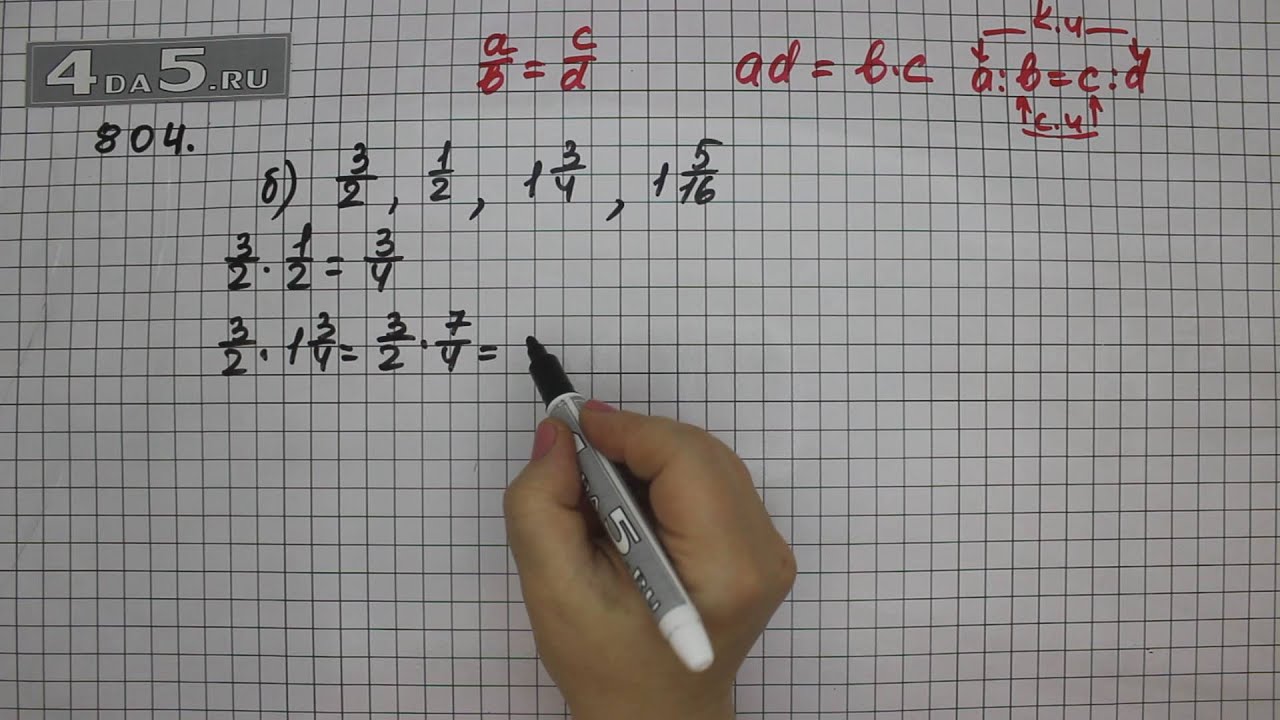 4DA5.RU
a/b = c/d   ad = b·c   к.ч
a:b = c:d
с.ч
804.
б) 3/2, 1/2, 1 3/4, 1 5/16
3/2 · 1/2 = 3/4
3/2 · 1 3/4 = 3/2 · 7/4 =
5.RU